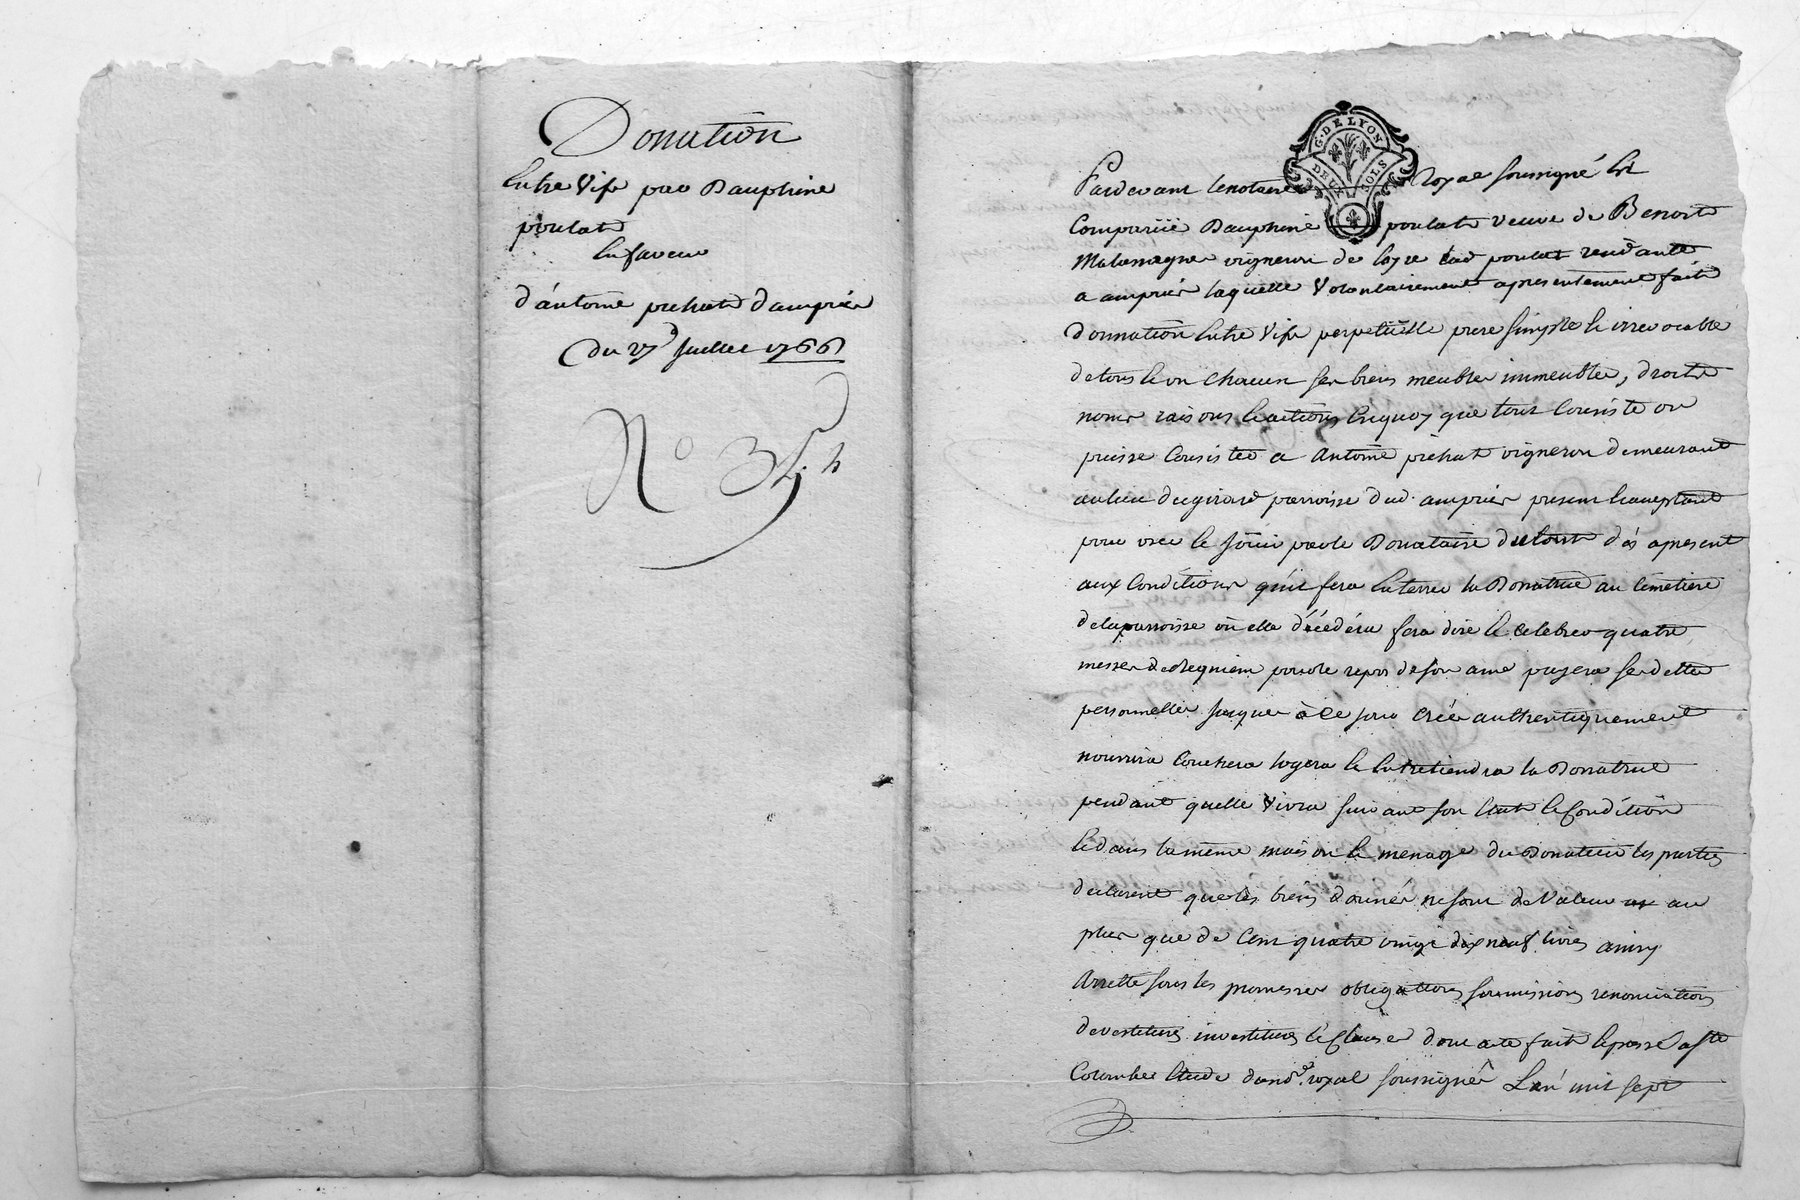 Donation
Entre Vifs par Dauphine
poulat
En faveur
d'antoine prehat d'ampuis
du 27 Juillet 1766
N° 35
G. DE LYON
DEUX SOLS
Pardevant le notaire royal soussigné Est
Comparüe Dauphine poulat veuve de Benoit
vigneron de loyre lad poulat residante
a ampuis laquelle Volontairement apresentement fait
donnation Entre Vifs perpetüelle pure simple et irrevocable
de tous et un chacun ses biens meubles immeubles, droits
noms raisons et actions Enquoy que tout Consiste ou
puisse Consister a Antoine prehat vigneron demeurant
au lieu du girard parroisse dud. ampuis present et acceptant
pour user et joüir par le Donataire du tout dés apresent
aux Conditions qu'il fera Enterrer la Donatrice au Cimetiere
de la parroisse où elle décédéra fera dire et celebrer quatre
messes de Requiem pour le repos de son ame payera ses dettes
personnelles jusques à Ce jour Créés authentiquement
nourrira Couchera logera et Entretiendra la Donatrice
pendant quelle Vivra suivant son Etat et Condition
et dans la même maison et menage du Donateur les parties
declarent que les biens donnés ne sont de Valeur au
plus que de Cent quatre vingt dix neuf livres ainsy
Arretté sous les promesses obligations soumissions renonciations
devestitures investitures et Clauses dont acte fait et passé a Ste
Colombe Etude dud no.re royal soussigné L'an mil sept